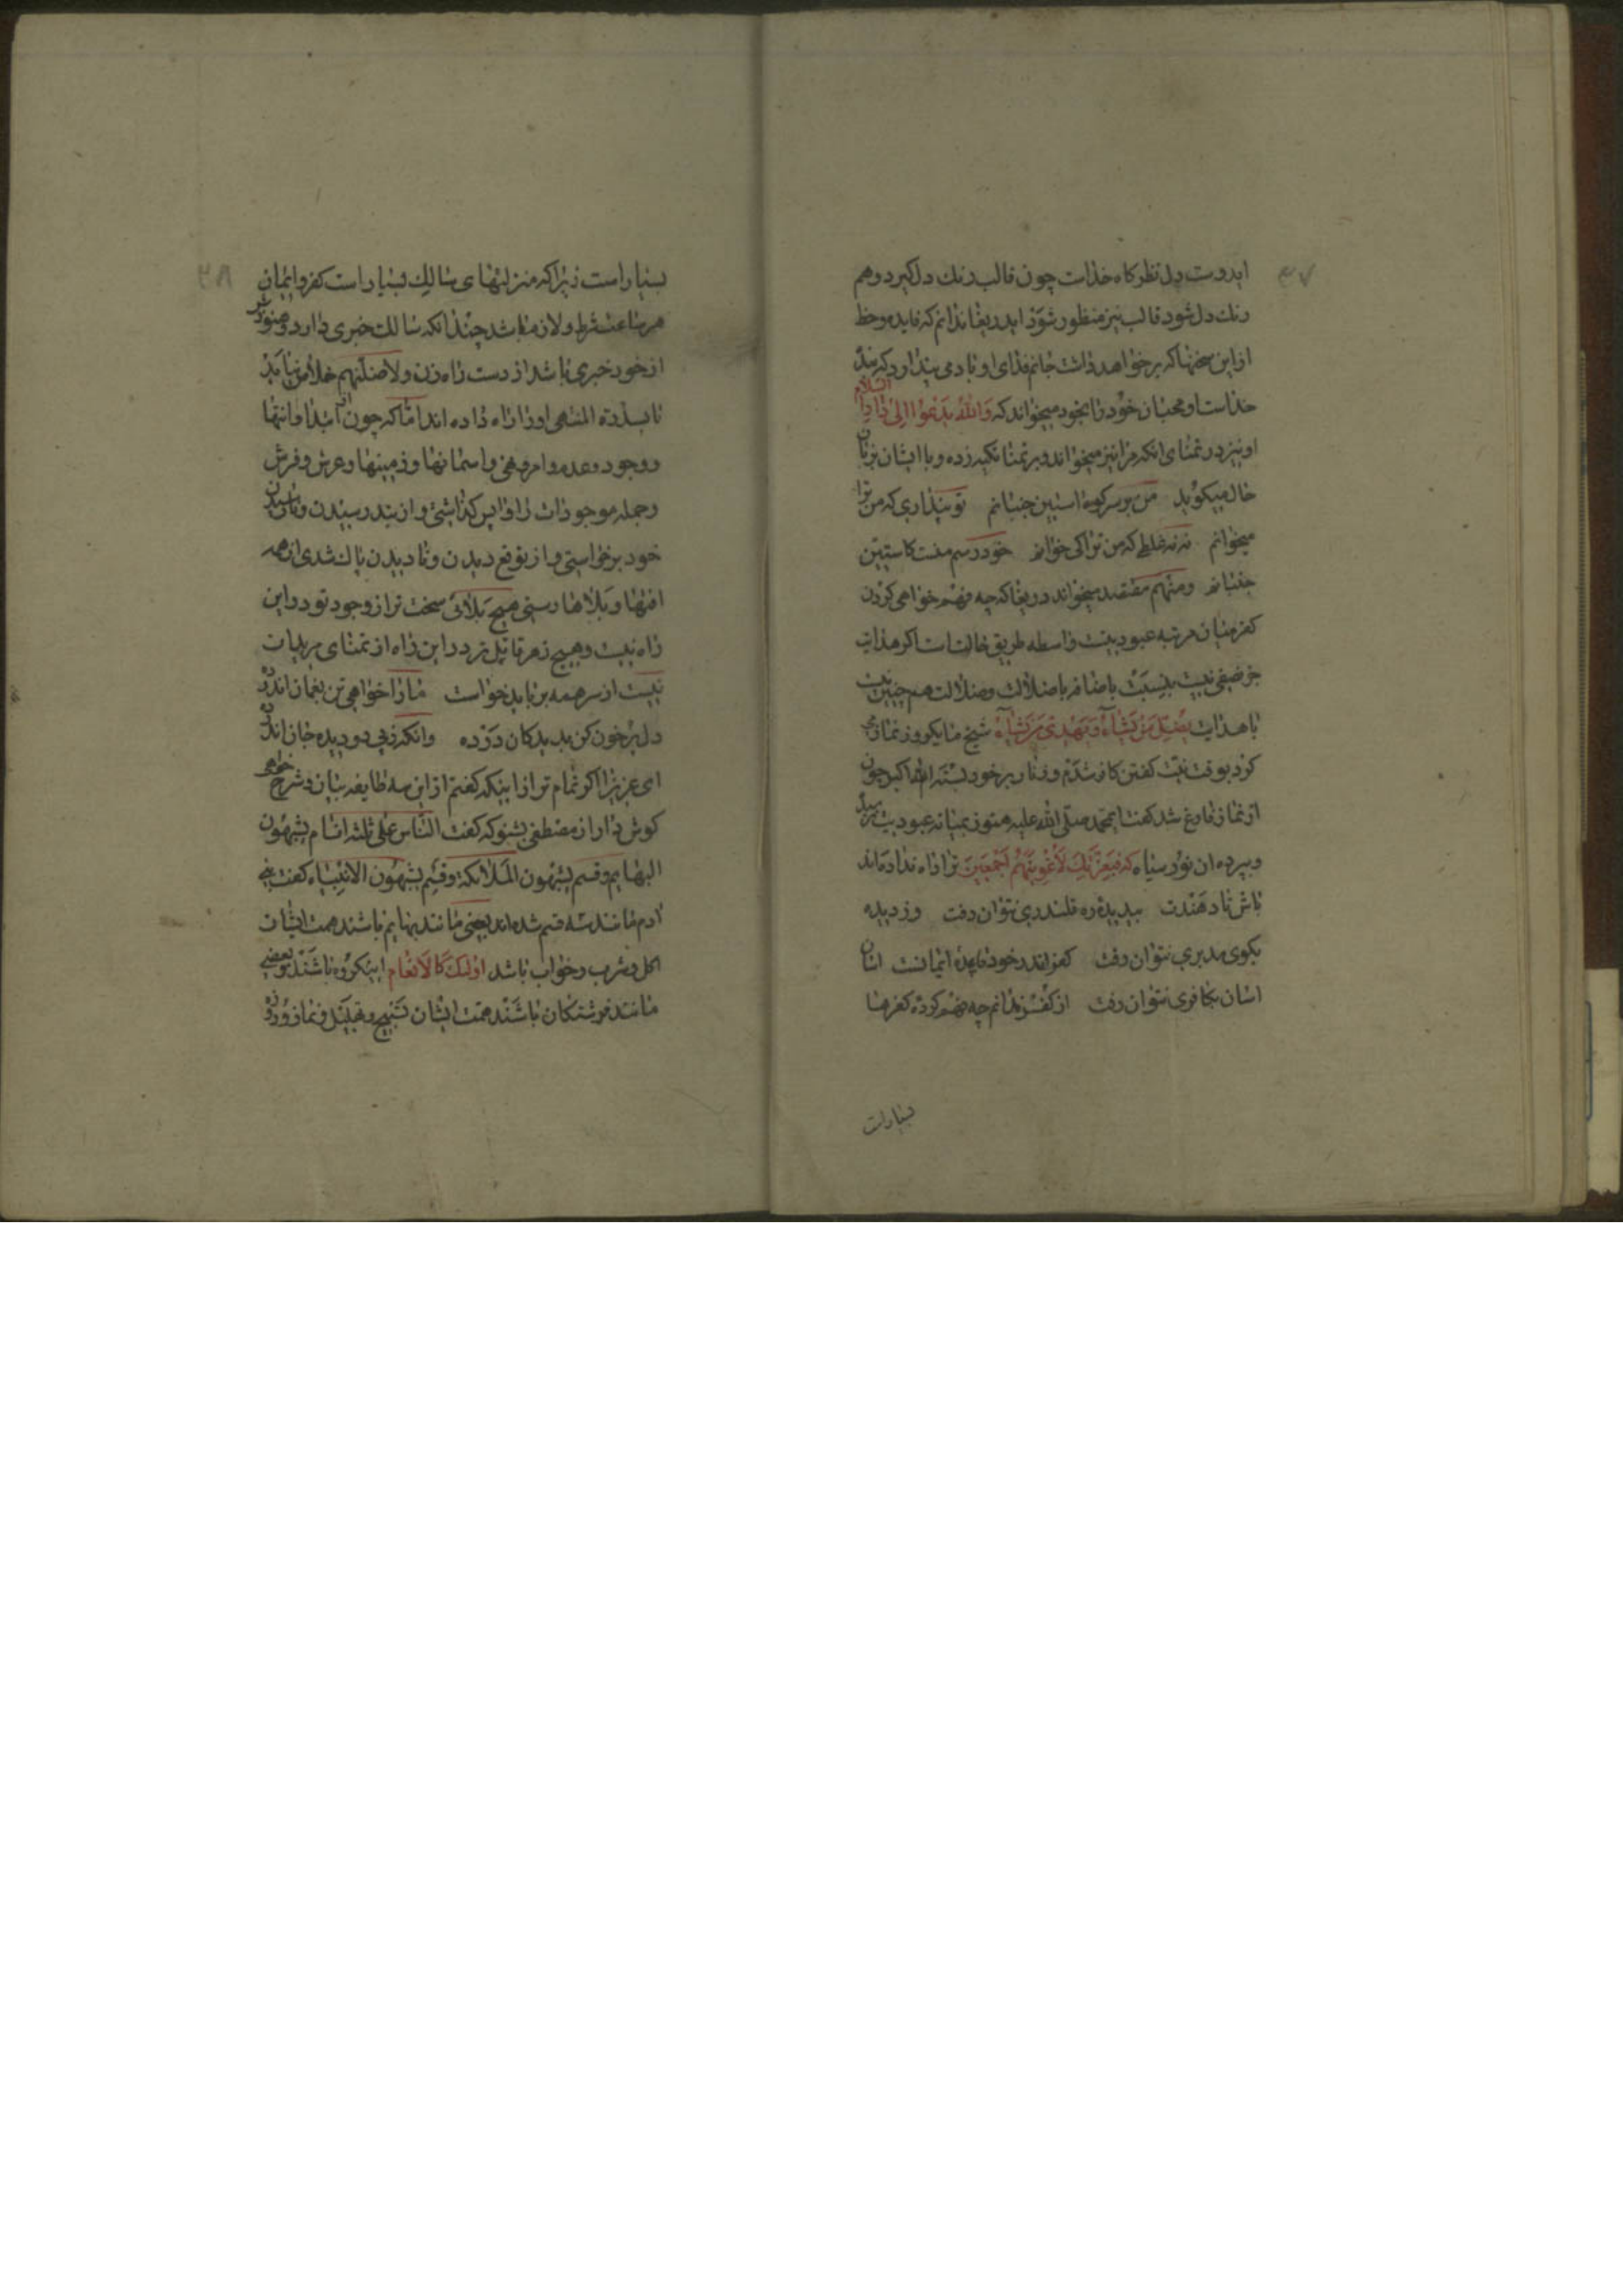 ۳۷
ایدوست دل نظرکاه خداست چون قالب رنك دل کیرد و هم
رنك دل شود قالب نیز منظور شود ای دریغا ندانم که فایده و حظ
از این سخنها که برخواهد داشت جانم فدای او بادمی پندارد که بندۀ
خداست او محبان خود را بخود میخواند که وَاللّهُ یَدْعُوا اِلیٰ دارِ السَّلام
او نیز در تمنای انکه مرا نیز میخواند و بر تمنا تکیه زده و با ایشان بزبان
حال میکوید من بر سر کوه استین جنبانم تو پنداری که من ترا
میخوانم نه نه غلطی که من ترا کی خوانم خود رسم منست کاستین
جنبانم و منهم مقتصد میخواند دریغا که چه فهم خواهی کردن
کفر میان مرتبه عبودیت واسطه طریق حالتست اکر هدایت
جز ضیفی نیست بنسبت باضافه باضلالت و ضلالت هم چنین نیست
با هدایت یُضِلُّ مَنْ یَشآءُ وَیَهْدی مَنْ یَشآءُ شیخ ما یکروز نماز می
کرد بوقت نیت کفتن کافر شدم و زنار بر خود بستم الله اکبر چون
از نماز فارغ شد کفت ای محمد صلی الله علیه هنوز بمیانه عبودیت نرسیدۀ
و بپرده ان نور سیاه که فَبِعِزَّتِكَ لَاُغْوِیَنَّهُمْ اَجْمَعینَ ترا راه نداده‌اند
باش تا دهندت بدیده ره قلندری نتوان رفت دزدیده
بکوی مدبری نتوان رفت کفر اندر خود قاعدۀ ایمانست اسان
اسان بکافری نتوان رفت از کفر ندانم چه فهم کردۀ کفرها
بسیار است
۳۸
بسیار است زیرا که منزلتهای سالك بسیار است کفر و ایمان
هر ساعت شرط و لازم باشد چندانکه سالك خبری دارد و هنوزش
از خود خبری باشد از دست راه زن ولاضلنهم خلاص نیابد
تا بسدرة المنتهی او را راه داده اند اما که چون از ابتدا و انتها
و وجود و عدم و امر و نهی و اسمانها و زمینها و عرش و فرش
و جمله موجودات را واپس کذاشتی و از بند رسیدن و نارسیدن
خود برخواستی و از توقع دیدن و نادیدن پاك شدی از همه
افتها و بلاها رستی هیچ بلائی سخت تر از وجود تو در این
راه نیست و هیچ زهر قاتل تر در این راه از تمنای مریدان
نیست از سر همه برباید خواست ما را خواهی تن بغمان اندر ده
دل پر خون کن بدیدکان در زده وانکه زپی دو دیده جان اندر ده
ای عزیز اکر تمام تر از اینکه کفتم از این سه طایفه بیان و شرح خواهی
کوش دار از مصطفی بشنو که کفت النّاس علی ثلثه اقسام یشبهون
البهایم و قسم یشبهون الملائکة و قسم یشبهون الانبیاء کفت بنی
ادم مانند سه قسم شده اند بعضی مانند بهایم باشند همت ایشان
اکل و شرب و خواب باشد اولئك کَالاَنْعام اینکروه باشند و بعضی
مانند فرشتکان باشند همت ایشان تسبیح و تهلیل و نماز و روزه